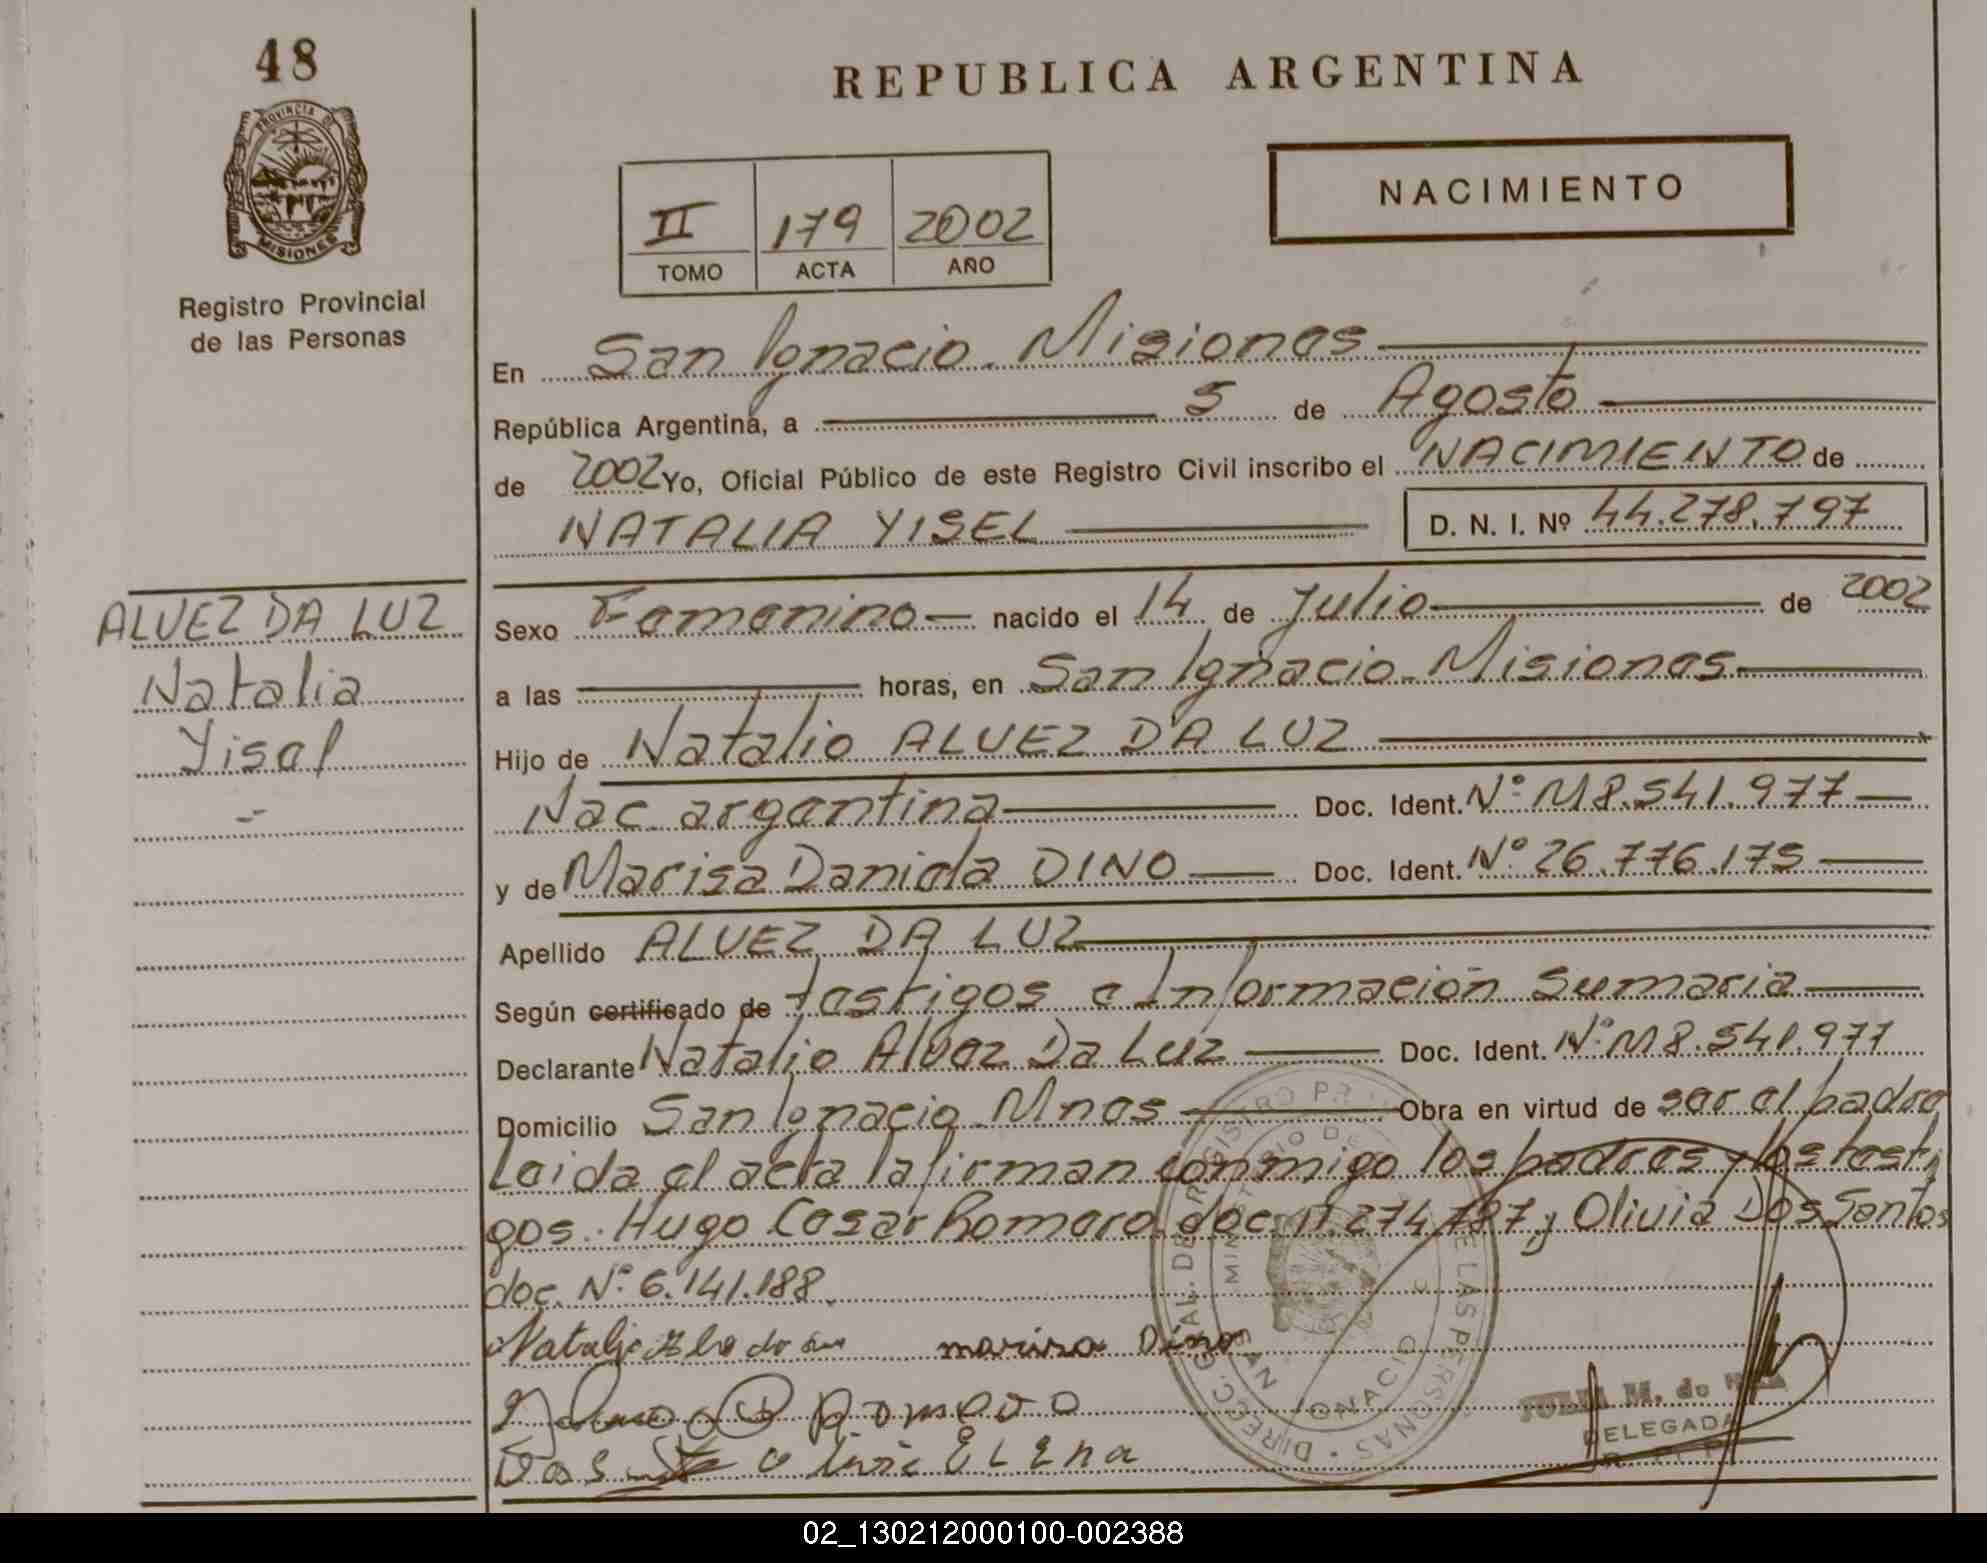 48
PROVINCIA DE
MISIONES
Registro Provincial
de las Personas
REPUBLICA ARGENTINA
II 179 2002
TOMO ACTA AÑO
NACIMIENTO
En San Ignacio. Misiones
República Argentina, a 5 de Agosto
de 2002 Yo, Oficial Público de este Registro Civil inscribo el NACIMIENTO de
NATALIA YISEL D. N. I. Nº 44.278.797
ALVEZ DA LUZ
Natalia
Yisel
Sexo Femenino nacido el 14 de Julio de 2002
a las horas, en San Ignacio. Misiones
Hijo de Natalio ALVEZ DA LUZ
Nac. argentina Doc. Ident. Nº M8.541.977
y de Marisa Daniela DINO Doc. Ident. Nº 26.776.175
Apellido ALVEZ DA LUZ
Según certificado de testigos e Información Sumaria
Declarante Natalio Alvez Da Luz Doc. Ident. Nº M8.541.977
Domicilio San Ignacio. Mnes Obra en virtud de ser el padre
Leida el acta la firman conmigo los padres y los testi
gos. Hugo Cesar Romero doc. 11.274.787 y Olivia Dos Santos
doc. Nº 6.141.188.
marisa Dino
Romero
Dos Olivia ELEna
DIRECC. GRAL. DE REGISTRO PR DE LAS PERSONAS
SAN IGNACIO
M. de
DELEGADA
02_130212000100-002388